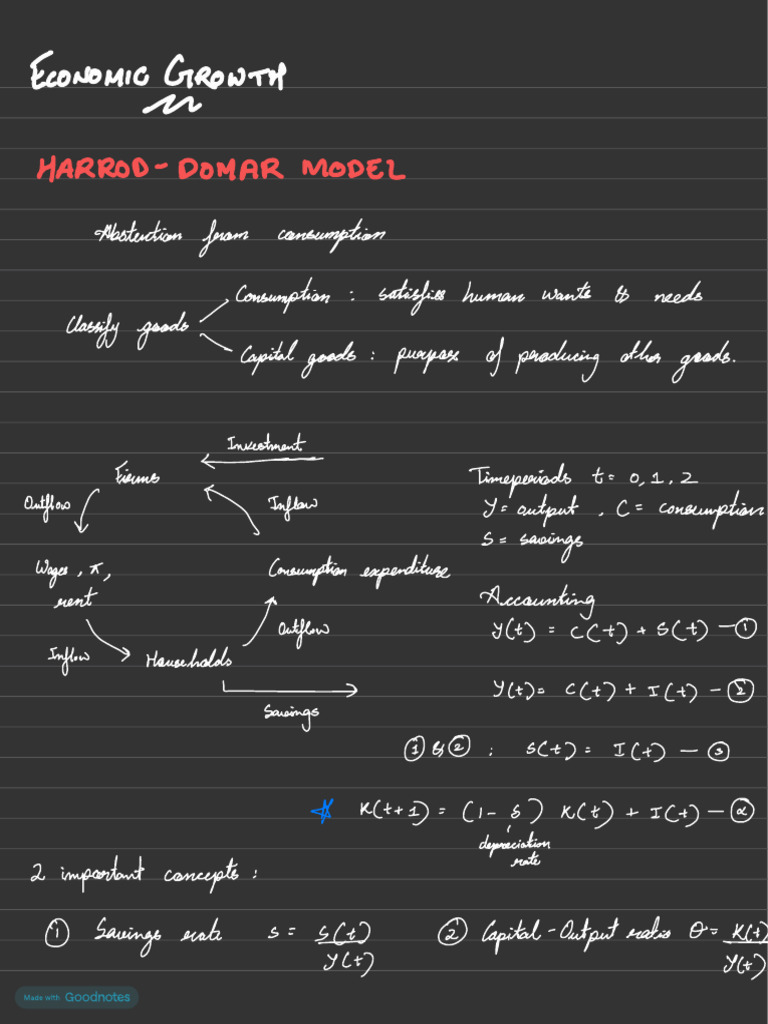 ECONOMIC GROWTH
HARROD-DOMAR MODEL
Abstention from consumption
Classify goods
Consumption : satisfies human wants & needs
Capital goods : purpose of producing other goods.
Investment
Firms
Outflow
Inflow
Wages, π,
rent
Consumption expenditure
Inflow
Households
Outflow
Savings
Timeperiods t = 0, 1, 2
Y = output , C = consumption
S = savings
Accounting
Y(t) = C(t) + S(t) — ①
Y(t) = C(t) + I(t) — ②
① & ② : S(t) = I(t) — ③
K(t+1) = (1 - δ) K(t) + I(t) — ⓐ
depreciation
rate
2 important concepts :
① Savings rate s = S(t)/Y(t)
② Capital-Output ratio θ = K(t)/Y(t)
Made with Goodnotes